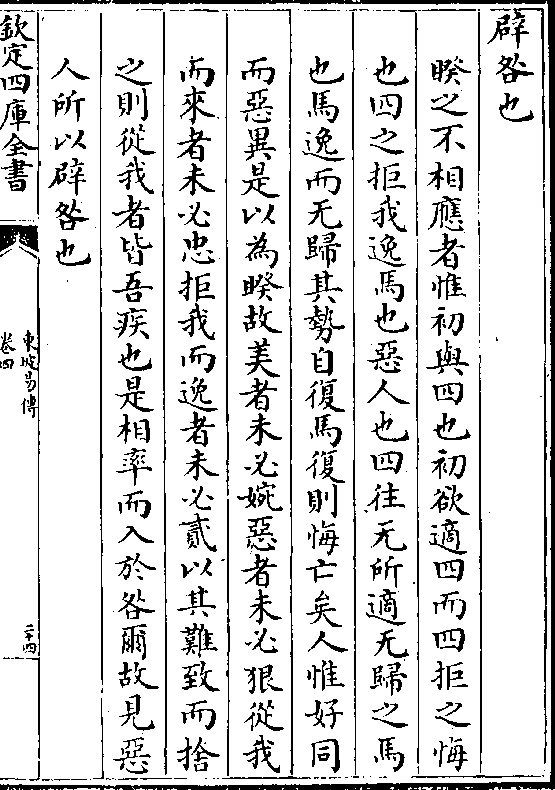 辟咎也
睽之不相應者惟初與四也初欲適四而四拒之悔
也四之拒我逸馬也惡人也四往无所適无歸之馬
也馬逸而无歸其勢自復馬復則悔亡矣人惟好同
而惡異是以為睽故美者未必婉惡者未必狠從我
而來者未必忠拒我而逸者未必貳以其難致而捨
之則從我者皆吾疾也是相率而入於咎爾故見惡
人所以辟咎也
欽定四庫全書
東坡易傳
卷四
二十四